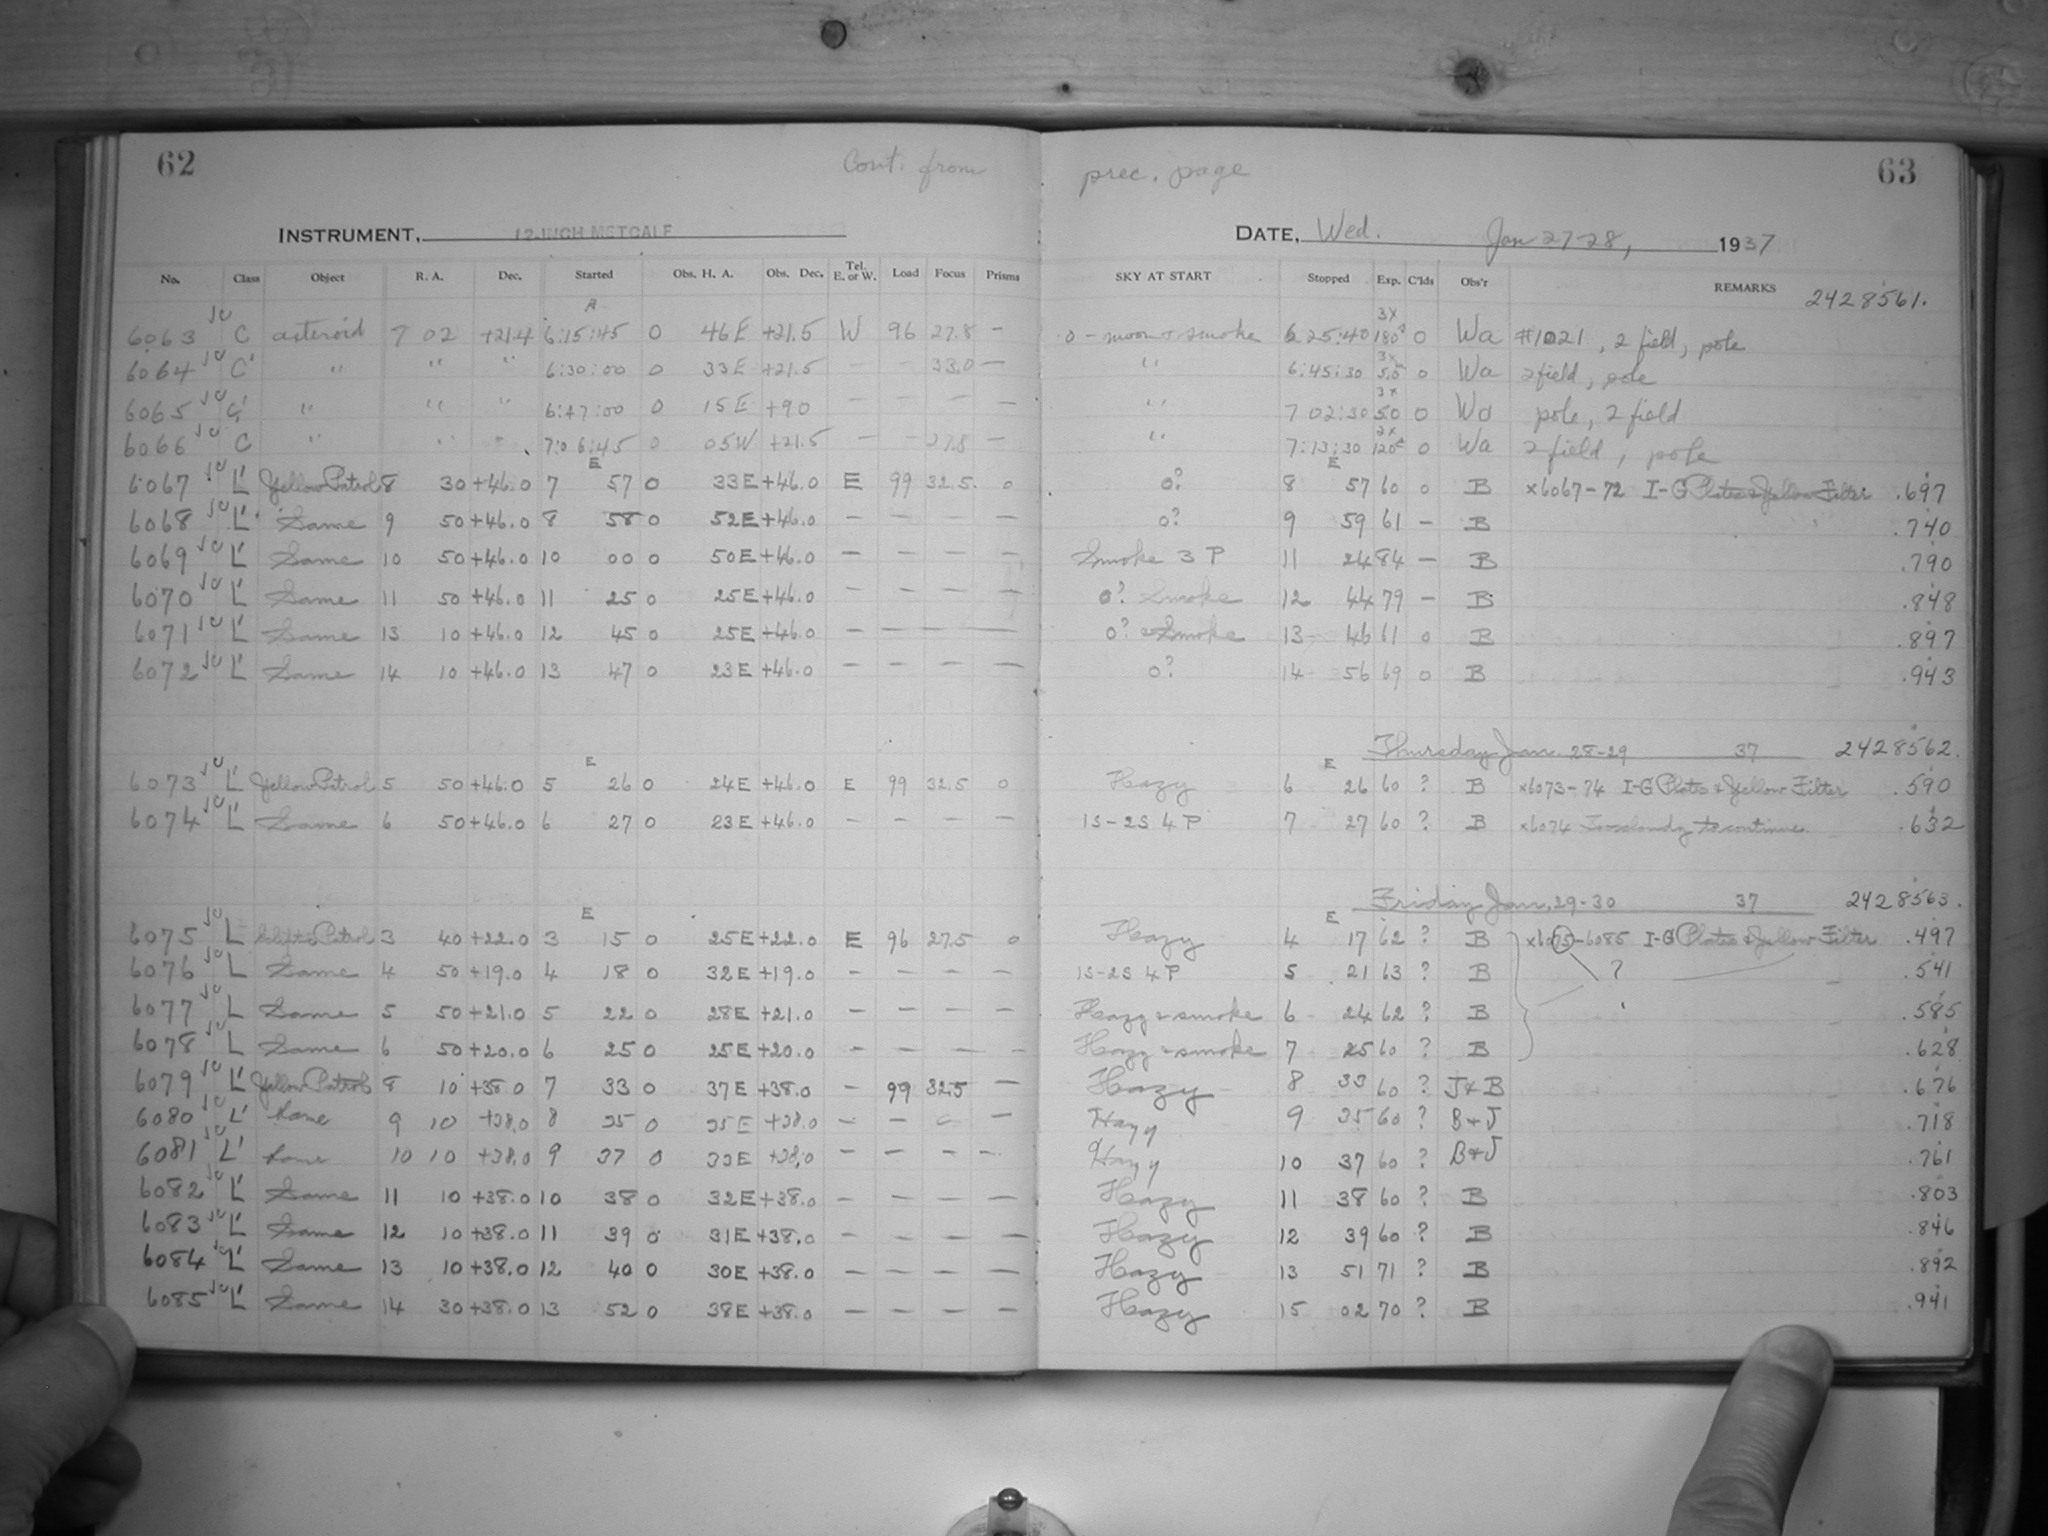 62 Cont. from prec. page 63
INSTRUMENT, 12-INCH METCALF DATE, Wed. Jan 27-28, 1937
No. Class Object R. A. Dec. Started Obs. H. A. Obs. Dec. Tel. E. or W. Load Focus Prisms SKY AT START Stopped Exp. C'lds Obs'r REMARKS 2428561.
6063 C asteroid 7 02 +21.4 A 6:15:45 0 46E +21.5 W 96 27.8 - 0 - moon + smoke 6 25:40 3x 180s 0 Wa #1021, 2 field, pole
6064 C' " " " 6:30:00 0 33E +21.5 — - 33.0 — " 6:45:30 3x 5.0m 0 Wa 2 field, pole
6065 C' " " " 6:47:00 0 15E +90 — - — — " 7 02:30 3x 50 0 Wa pole, 2 field
6066 C " " " 7:06:45 0 05W +21.5 — - 27.8 — " 7:13:30 2x 120s 0 Wa 2 field, pole
6067 L' Yellow Patrol 8 30 +46.0 E 7 57 0 33E +46.0 E 99 32.5 0 0? E 8 57 60 0 B x6067-72 I-G Plates & Yellow Filter .697
6068 L' Same 9 50 +46.0 8 58 0 52E +46.0 — — — — 0? 9 59 61 — B .740
6069 L' Same 10 50 +46.0 10 00 0 50E +46.0 — — — — Smoke 3 P 11 24 84 — B .790
6070 L' Same 11 50 +46.0 11 25 0 25E +46.0 — — — — 0? Smoke 12 44 79 — B .848
6071 L' Same 13 10 +46.0 12 45 0 25E +46.0 — — — — 0? & Smoke 13 46 61 0 B .897
6072 L' Same 14 10 +46.0 13 47 0 23E +46.0 — — — — 0? 14 56 69 0 B .943
Thursday Jan. 28-29 37 2428562.
6073 L' Yellow Patrol 5 50 +46.0 E 5 26 0 24E +46.0 E 99 32.5 0 Hazy E 6 26 60 ? B x6073-74 I-G Plates & Yellow Filter .590
6074 L' Same 6 50 +46.0 6 27 0 23E +46.0 — — — — 1S-2S 4 P 7 27 60 ? B x6074 Too cloudy to continue. .632
Friday Jan. 29-30 37 2428563.
6075 L Ecliptic Patrol 3 40 +22.0 E 3 15 0 25E +22.0 E 96 27.5 0 Hazy E 4 17 62 ? B x6075-6085 I-G Plates & Yellow Filter .497
6076 L Same 4 50 +19.0 4 18 0 32E +19.0 — — — — 1S-2S 4 P 5 21 63 ? B ? .541
6077 L Same 5 50 +21.0 5 22 0 28E +21.0 — — — — Hazy & smoke 6 24 62 ? B .585
6078 L Same 6 50 +20.0 6 25 0 25E +20.0 — — — — Hazy & smoke 7 25 60 ? B .628
6079 L' Yellow Patrol 8 10 +38.0 7 33 0 37E +38.0 — 99 32.5 — Hazy 8 33 60 ? J & B .676
6080 L' Same 9 10 +38.0 8 35 0 35E +38.0 — — — — Hazy 9 35 60 ? B & J .718
6081 L' Same 10 10 +38.0 9 37 0 33E +38.0 — — — — Hazy 10 37 60 ? B & J .761
6082 L' Same 11 10 +38.0 10 38 0 32E +38.0 — — — — Hazy 11 38 60 ? B .803
6083 L' Same 12 10 +38.0 11 39 0 31E +38.0 — — — — Hazy 12 39 60 ? B .846
6084 L' Same 13 10 +38.0 12 40 0 30E +38.0 — — — — Hazy 13 51 71 ? B .892
6085 L' Same 14 30 +38.0 13 52 0 38E +38.0 — — — — Hazy 15 02 70 ? B .941